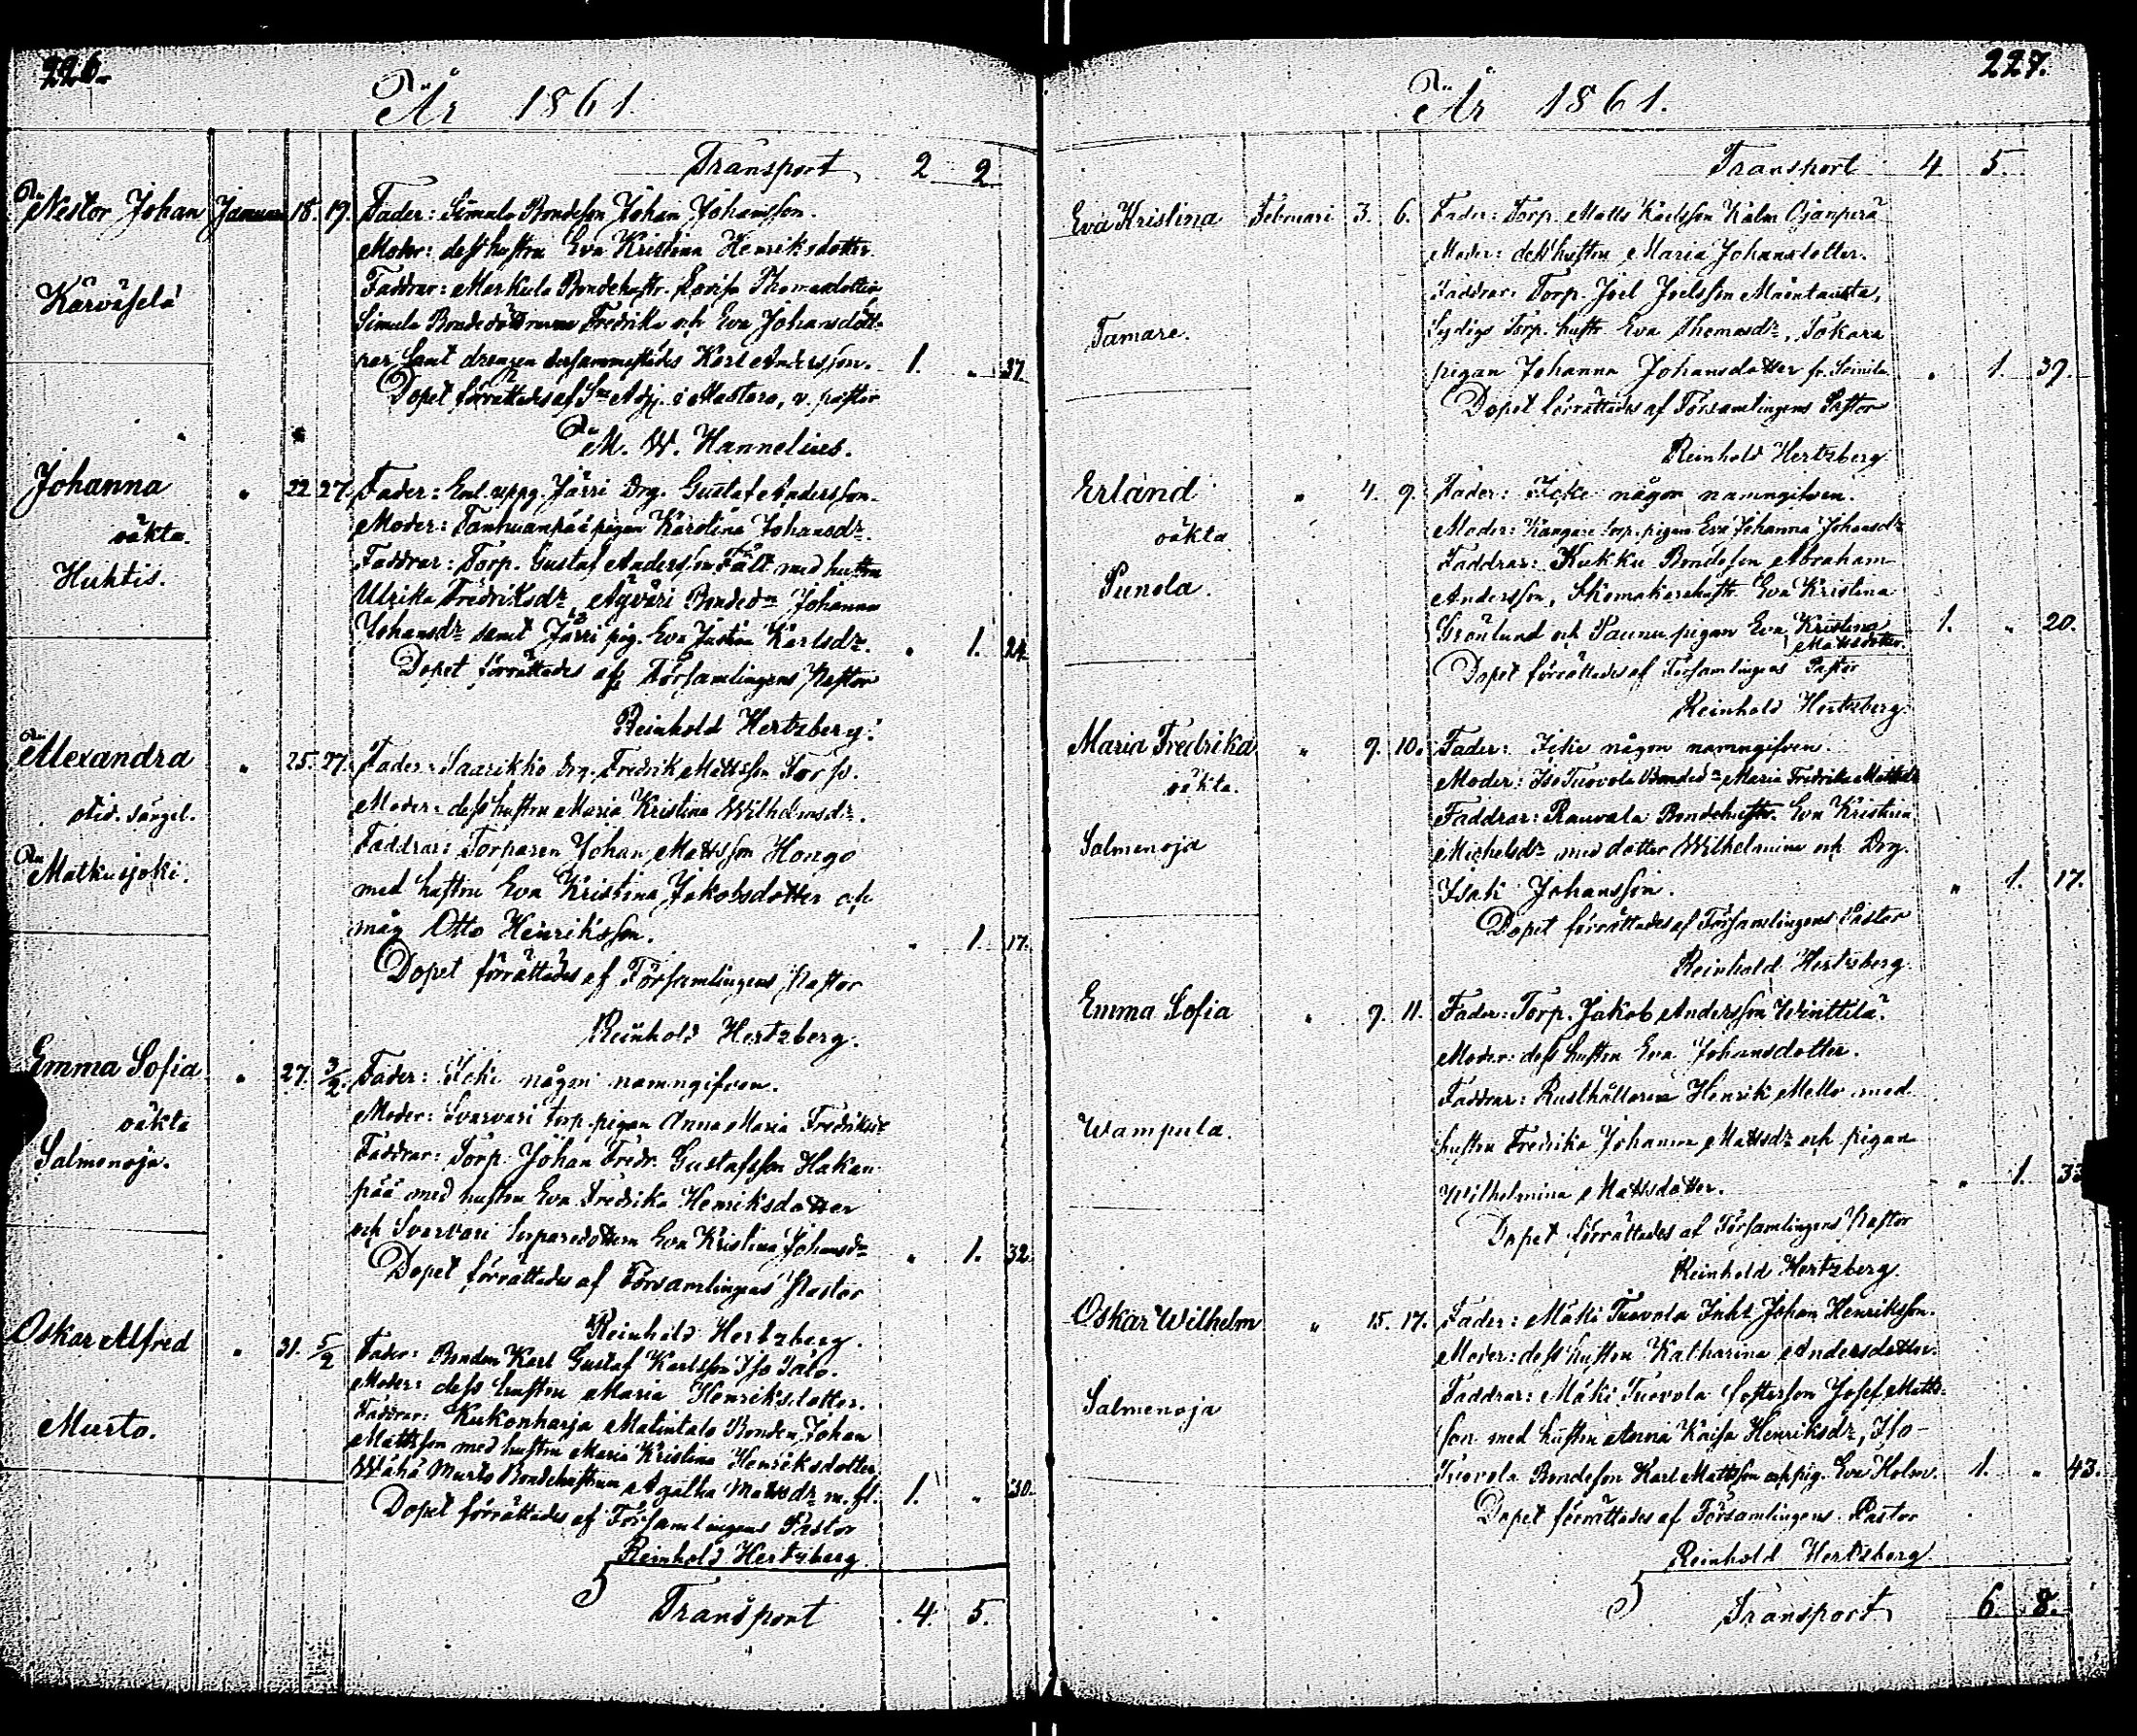 226.
År 1861.
Transport 2 2
Nestor Johan Januari 18. 19. Fader: Simula Bondeson Johan Johansson.
Moder: dess hustru Eva Kristina Henriksdotter.
Kärväselä
Faddrar: Markula Bondehustr. Lovisa Thomasdotter
Simula Bondedöttrarne Fredrika och Eva Johansdött-
rar samt drengen dersammastädes Karl Andersson. 1. " 37.
Dopet förrättades af Sn Adj. i Mastara, v. pastor
M. W. Hannelius.
Johanna " 22. 27. Fader: Enl. uppg. Järri Drg. Gustaf Andersson.
oäkta. Moder: Tanhuanpää pigan Karolina Johansdr.
Huhtis. Faddrar: Torp. Gustaf Andersson Fält med hustru
Ulrika Fredriksdr, Äyväri Bonded:n Johanna
Johansdr samt Järri pig. Eva Justina Karlsdr. " 1. 24.
Dopet förrättades af Församlingens Pastor
Reinhold Hertzberg.
Alexandra " 25. 27. Fader: Saarikko Drg. Fredrik Mattsson Torp.
Moder: dess hustru Maria Kristina Wilhelmsdr.
Matkusjoki. Faddrar: Torparen Johan Mattsson Hongo
med hustru Eva Kristina Jakobsdotter och
måg Otto Henriksson. " 1. 17.
Dopet förrättades af Församlingens Pastor
Reinhold Hertzberg.
Emma Sofia " 27. 3/2. Fader: Icke någon namngifven.
oäkta Moder: Svarvari torp. pigan Anna Maria Fredriksdr
Salmenoja. Faddrar: Torp. Johan Fredr. Gustafsson Hakan-
pää med hustru Eva Fredrika Henriksdotter
och Svarvari torparedottern Eva Kristina Johansdr " 1. 32.
Dopet förrättades af Församlingens Pastor
Reinhold Hertzberg.
Oskar Alfred " 31. 5/2 Fader: Bonden Karl Gustaf Karlsson Iso Talo.
Moder: dess hustru Maria Henriksdotter.
Murto. Faddrar: Kukonharja Matintalo Bonden Johan
Mattsson med hustru Maria Kristina Henriksdotter,
Wähä Murto Bondehustrun Agatha Mattsdr m. fl. 1. " 30.
Dopet förrättades af Församlingens Pastor
Reinhold Hertzberg.
5
Transport 4. 5.
227.
År 1861.
Transport 4 5.
Eva Kristina Februari 3. 6. Fader: Torp. Matts Karlsson Kalm Ojanperä
Moder: dess hustru Maria Johansdotter.
Faddrar: Torp. Joel Joelsson Mäentausta,
Tamare. Torp. hustr. Eva Thomasdr, Sokara
pigan Johanna Johansdotter fr. Loimila. " 1. 39.
Dopet förrättades af Församlingens Pastor
Reinhold Hertzberg
Erland " 4. 9. Fader: Icke någon namngifven.
oäkta Moder: Kangare torp. pigan Eva Johanna Johansdr
Punola. Faddrar: Kukku Bondeson Abraham
Andersson, Skomakarehustr. Eva Kristina
Grönlund och Saunu pigan Eva Kristina
Mattsdotter. 1. " 20.
Dopet förrättades af Församlingens Pastor
Reinhold Hertzberg.
Maria Fredrika " 9. 10. Fader: Icke någon namngifven.
oäkta. Moder: Iso Tuovola Bonded:n Maria Fredrika Mattsdr
Faddrar: Rauvala Bondehustr. Eva Kristina
Salmenoja Michelsdr med dotter Wilhelmina och Drg.
Isak Johansson. " 1. 17.
Dopet förrättades af Församlingens Pastor
Reinhold Hertzberg.
Emma Sofia " 9. 11. Fader: Torp. Jakob Andersson Winttilä.
Moder: dess hustru Eva Johansdotter.
Faddrar: Rusthållaren Henrik Mello med
Wampula. hustru Fredrika Johanna Mattsdr och pigan
Wilhelmina Mattsdotter. " 1. 33
Dopet förrättades af Församlingens Pastor
Reinhold Hertzberg.
Oskar Wilhelm " 15. 17. Fader: Mäki Tuovola Inhz Johan Henriksson.
Moder: dess hustru Katharina Andersdotter.
Faddrar: Mäki Tuovola Josef Matts-
Salmenoja son med hustru Anna Kaisa Henriksdr, Iso-
Tuovola Bondeson Karl Mattsson och pig. Eva Holm. 1. " 43.
Dopet förrättades af Församlingens Pastor
Reinhold Hertzberg
5
Transport 6. 8.